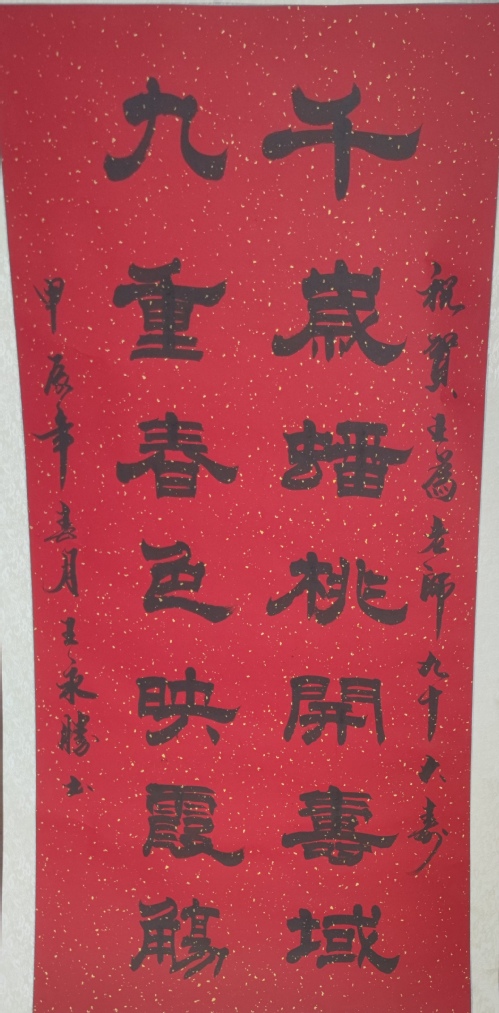 祝賀王為老師九十大壽
千歲蟠桃開壽域
九重春色映霞觴
甲辰年春月王永勝书